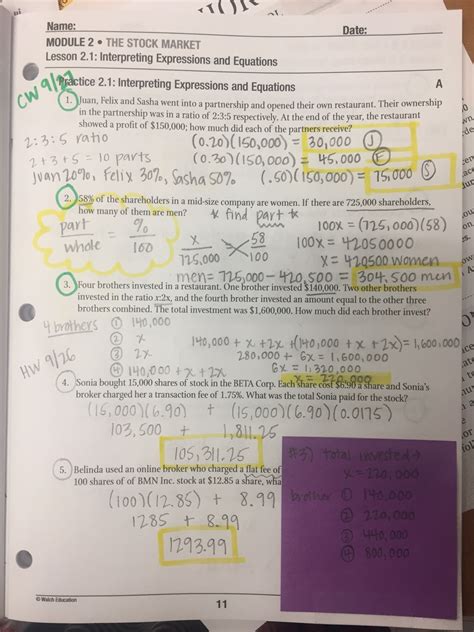 Name:
Date:
MODULE 2 • THE STOCK MARKET
Lesson 2.1: Interpreting Expressions and Equations
CW 9/27
Practice 2.1: Interpreting Expressions and Equations
A
1. Juan, Felix and Sasha went into a partnership and opened their own restaurant. Their ownership
in the partnership was in a ratio of 2:3:5 respectively. At the end of the year, the restaurant
showed a profit of $150,000; how much did each of the partners receive?
2:3:5 ratio
(0.20)(150,000) = 30,000 J
2+3+5 = 10 parts
(0.30)(150,000) = 45,000 F
Juan 20%, Felix 30%, Sasha 50%
(.50)(150,000) = 75,000 S
2. 58% of the shareholders in a mid-size company are women. If there are 725,000 shareholders,
how many of them are men?
* find part *
part/whole = %/100
x/725,000 58/100
100x = (725,000)(58)
100x = 42050000
x = 420500 women
men = 725,000 - 420,500 = 304,500 men
3. Four brothers invested in a restaurant. One brother invested $140,000. Two other brothers
invested in the ratio x:2x, and the fourth brother invested an amount equal to the other three
brothers combined. The total investment was $1,600,000. How much did each brother invest?
4 brothers
① 140,000
② x
③ 2x
④ 140,000 + x + 2x
140,000 + x + 2x + (140,000 + x + 2x) = 1,600,000
280,000 + 6x = 1,600,000
6x = 1,320,000
x = 220,000
HW 9/26
4. Sonia bought 15,000 shares of stock in the BETA Corp. Each share cost $6.90 a share and Sonia's
broker charged her a transaction fee of 1.75%. What was the total Sonia paid for the stock?
(15,000)(6.90) + (15,000)(6.90)(0.0175)
103,500 + 1,811.25
105,311.25
5. Belinda used an online broker who charged a flat fee of
100 shares of of BMN Inc. stock at $12.85 a share,
(100)(12.85) + 8.99
1285 + 8.99
1293.99
#3) total invested →
x = 220,000
brother ① 140,000
② 220,000
③ 440,000
④ 800,000
© Walch Education
11